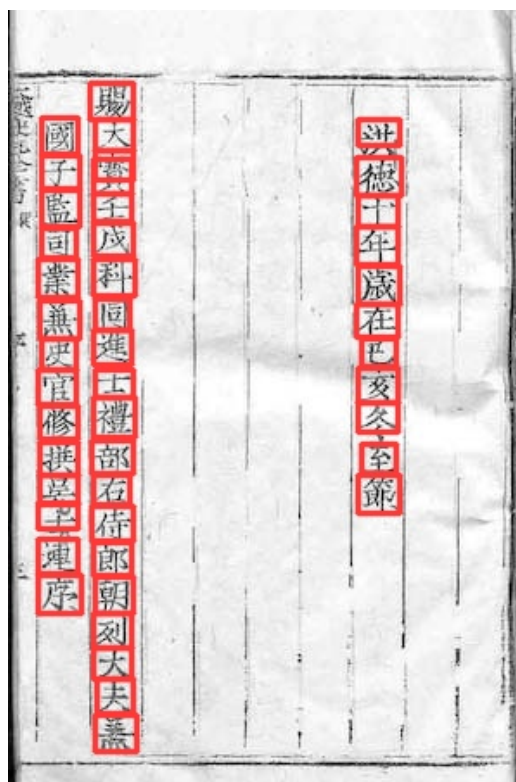 洪德十年歲在己亥冬至節
賜大寶壬戌科同進士禮部右侍郎朝列大夫蒹
國子監司業蒹史官修撰吳士連序